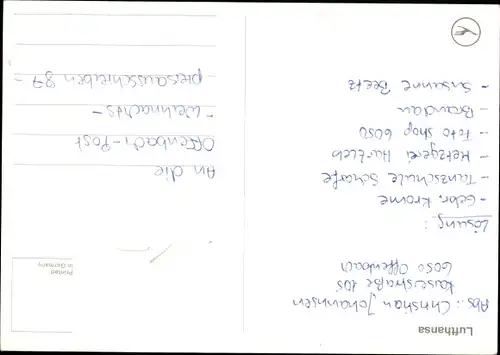 Lufthansa
Abs.: Christian Johannsen
Kaiserstraße 105
6050 Offenbach
Lösung:
- Gebr. Krome
- Tanzschule Schäfe
- Metzgerei
- Foto Shop 6050
- Susanne Beetz
Printed
in Germany
An die
Offenbach-Post
- Weihnachts-
preisausschreiben 87 -